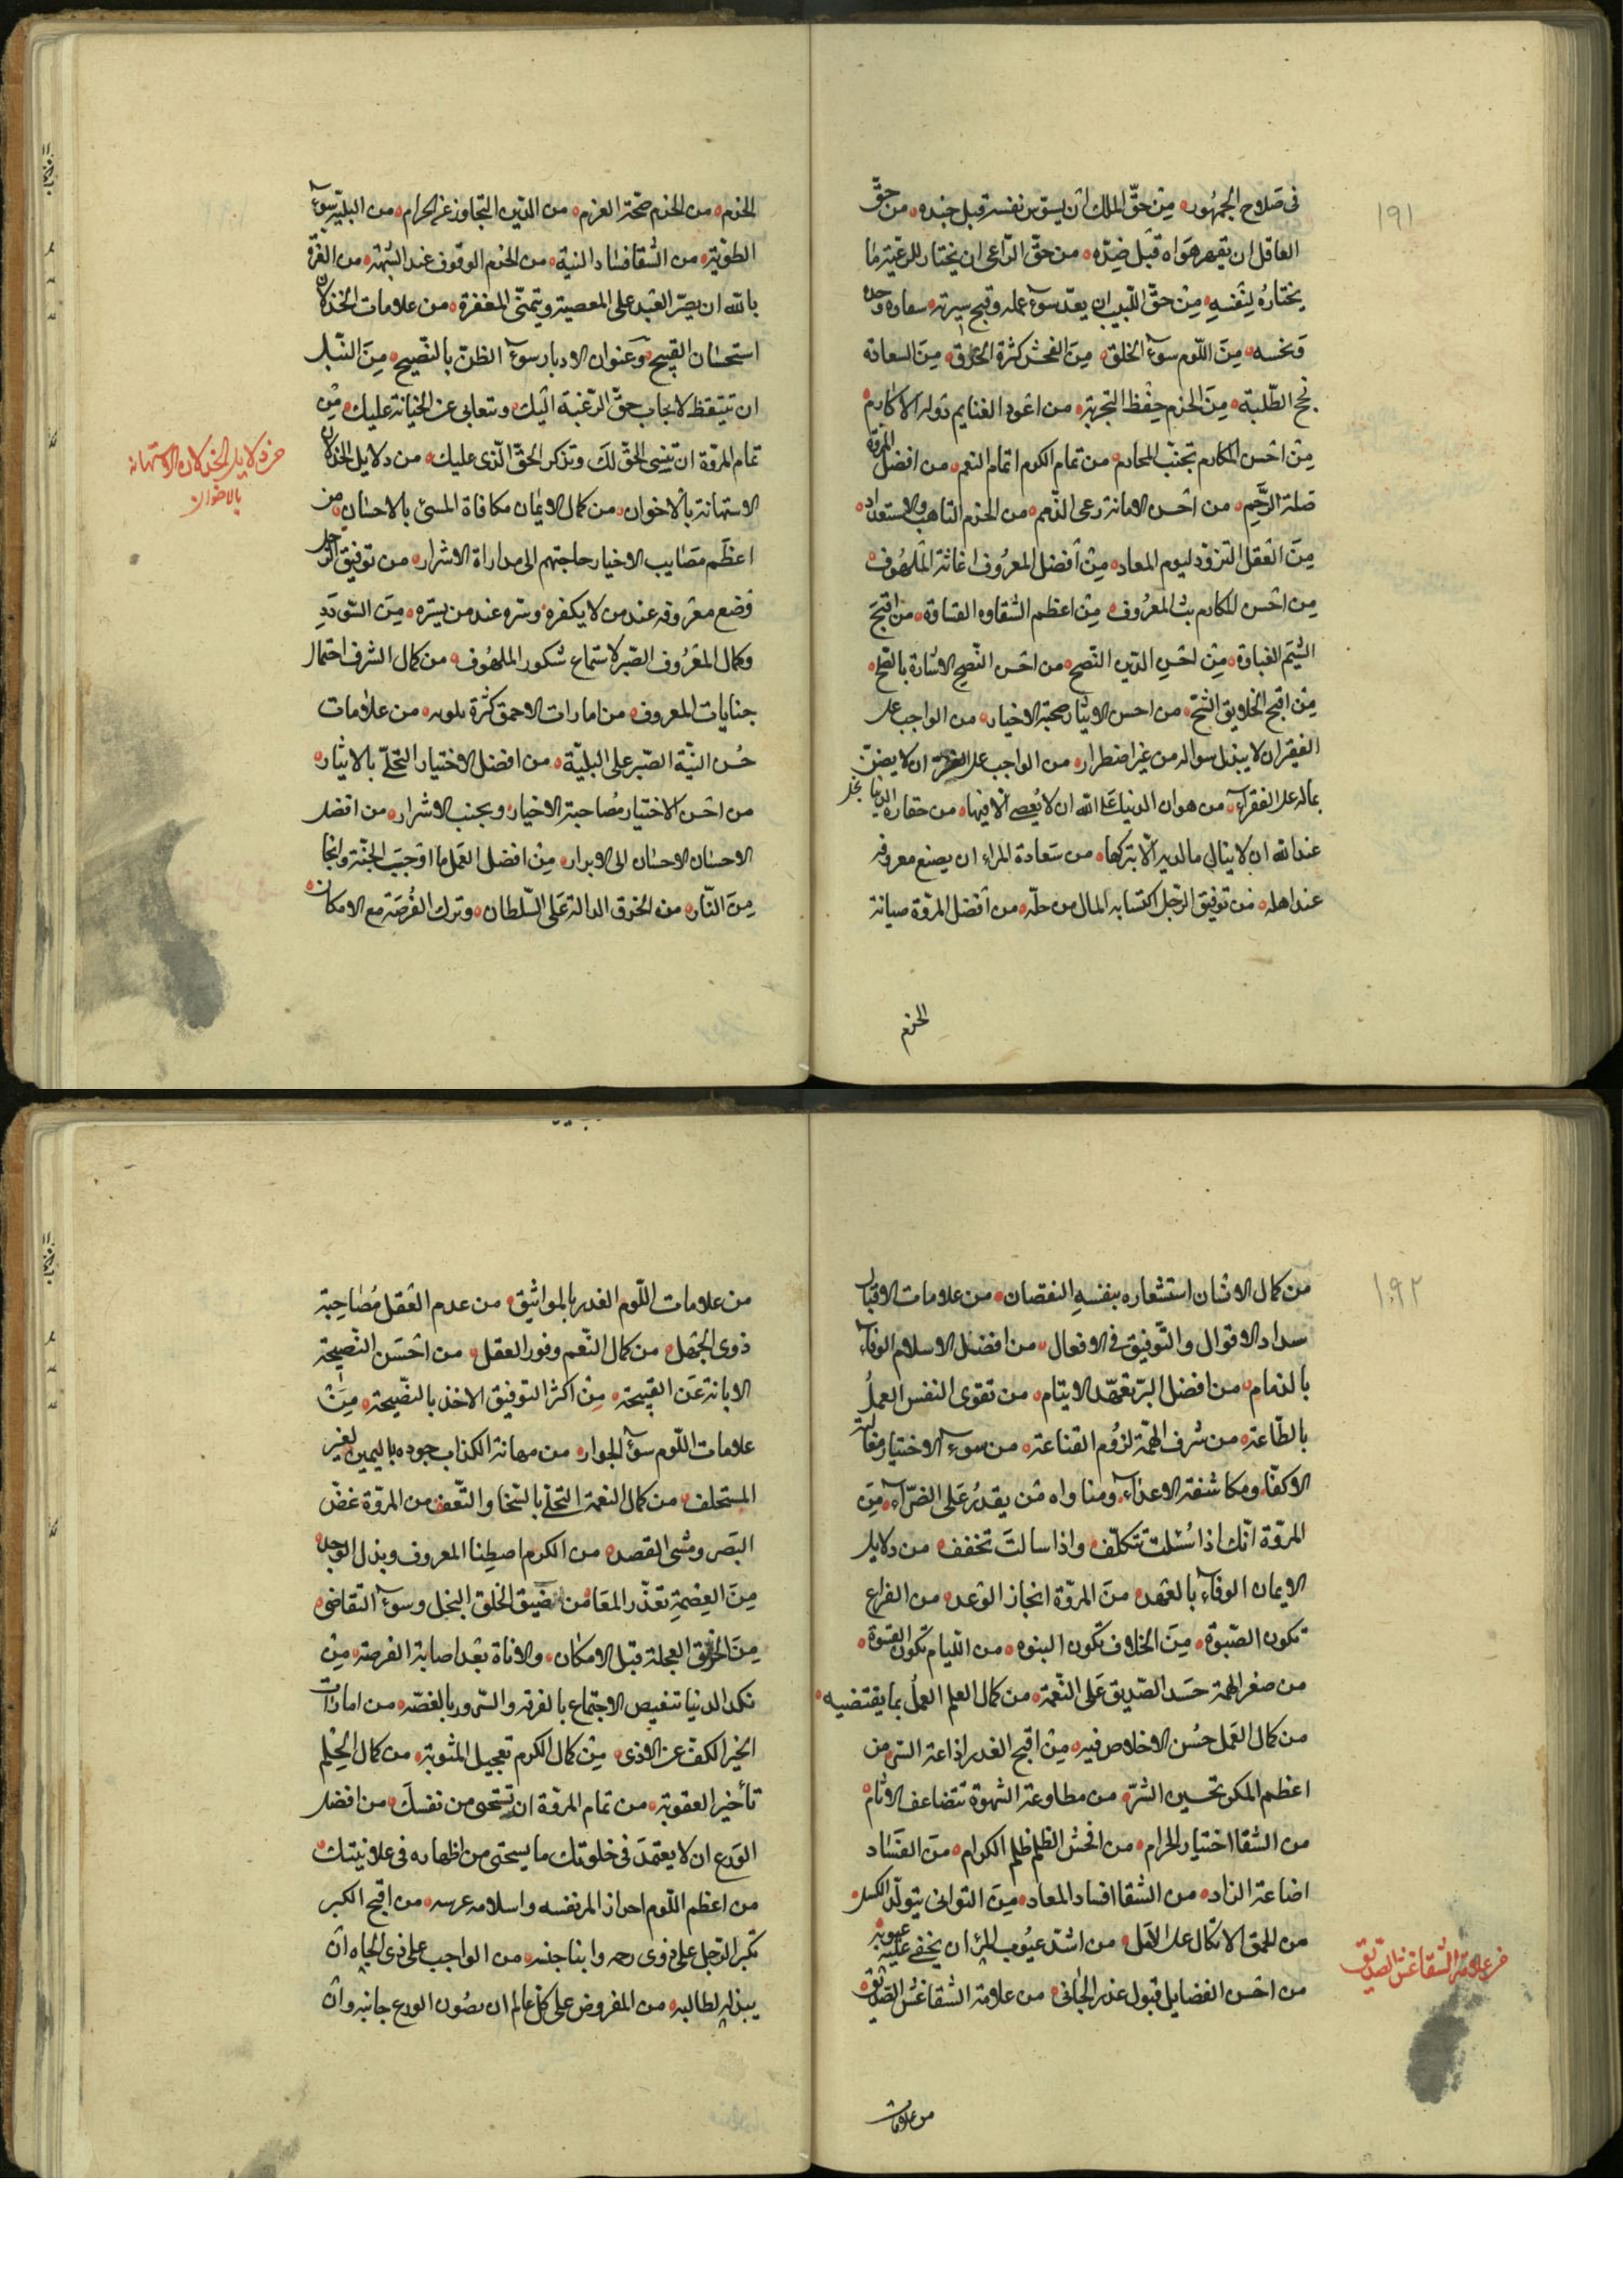 ١٩١
فى صَلاح الجمهُور من حقّ الملك ان يسوس نفسه قبل جنده من حقّ
العاقل ان يقهر هواه قبل ضدّه من حقّ الرّاعى ان يختار للرعيّة ما
يختارُه لنفسهِ مِن حقّ اللّبيب ان يعدّ سوءَ عمله وقبح سيرته
ونحسه مِنَ اللّوم سوءُ الخلق مِنَ الفحش كثرة الخرق مِنَ السعادة
نجح الطّلبة مِنَ الحزم حِفْظ التجربة من اعود الغنايم دولة الاكارم
مِن احْسن المكارم تجنّب المحارم من تمام الكرم اتمام النعم من افضل المروّة
صلة الرّحِم من احْسن الامانة رعى الذّمم من الحزم التاهب والاستعداد
مِنَ العَقل التزوّد ليوم المعاد مِن أفضل المعرُوف اغاثة الملهُوف
مِن احْسن المكارم بث المعرُوف مِن اعظم الشقاوه القساوة من اقبحَ
الشيَم الغباوة مِن احْسنِ الدّين النّصح من احْسن النّصح الاشارة بالصّلح
مِن اقبح الخلايق الشّح من احسن الايثار صحبَة الاخيار من الواجب على
الفقير ان لا يبذل سواله من غير اضطرار من الواجب على ان لا يضنّ
بماله على الفقرآء من هوان الدنيا عَلى الله ان لا يُعصى الا فيها من حقارة الدنيا
عند الله ان لا ينال ما لديه الّا بتركها من سَعادة المراء ان يصنع معروفه
عند اهله من توفيق الرّجل اكتسابه المال من حلّه من افضل المروّة صيانة
الحزم
الحزم من الحزم صحّة العزم من الدّين التجاوز عن الحرام من البليّة سوءُ
الطّويّة من الشّقا فسَاد النية من الحزم الوقوف عند الشّبهة من الغرّة
بالله ان يصرّ العَبد على المعصية ويتمنّى المغفرة من علامات الخذلان
استحسَان القبيح وعنوان الادبار سوءُ الظنّ بالنّصيح مِنَ النّبل
ان تتيقظ لايجاب حقّ الرّغبَة اليك وتتعابى عن الخيانة عليك مِن
تمام المروّة ان تنسِى الحقّ لكَ وتذكر الحقّ الّذى عليك من دلايل الخذلان
الاستهانة بالاخوان من كمال الايمَان مكافاة المسئ بالاحسَان من
اعظَم مصَايب الاخيار حاجتهم الى مداراة الاشرار من توفيق الرّجل
وَضع معروفه عند من لا يكفره وسره عند من يستره مِنَ السّودَدِ
وكمال المعرُوف الصّبر لاستماع شكور الملهُوف من كمال الشرف احتمال
جنايات المعروف من امارات الاحمق كثرة تلونه من علامات
حُسن النيّة الصّبر على البليّة من افضل الاختيار التحلّى بالايثار
من احسَن الاختيار مُصاحبة الاخيار وتجنب الاشرار من افضل
الاحسَان الاحسَان الى الابرار مِن افضل العَمل ما اوجَبَ الجنّة وانجا
مِنَ النّار من الخرق الدالة عَلى السّلطان وترك الفُرصَة مع الامكان
من دلايل الخذلان الاستهانة
بالاخوان
١٩٢
من كمال الانسَان استشعاره بنفسهِ النقصان من علامات الاقبال
سداد الاقوال والتّوفيق فى الافعال من افضَل الاسلام الوفآء
بالذمام من افضل البرّ تعهّد الايتام من تقوى النفس العملُ
بالطّاعة من شرف الهمّة لزُوم القناعة من سوء الاختيار مغالبة
الاكفّا ومكاشفة الاعدآء ومناواه مَن يقدرُ عَلى الضرّآء مِنَ
المروّة انّك اذا سُئلت تتكلّف واذا سالتَ تخفف من دلايل
الايمان الوفآء بالعهد منَ المروّة انجاز الوَعد من الفراغ
تكون الصّبوة مِنَ الخلاف تكون النبوه من اللّيام تكون القسوة
من صغر الهمّة حَسَد الصّديق عَلى النّعمة من كمال العلم العملُ بما يقتضيه
من كمال العَمل حسُن الاخلاص فيه مِن اقبح الغدر اذاعة السّر من
اعظم المكر تحسين الشرّ من مطاوعة الشهوة تتضاعف الاثام
من الشقا اختيار الحرام من افحش الظلم ظلم الكرام منَ الفسَاد
اضاعة الزاد من الشقا افساد المعاد مِنَ التوانى يتولّد الكسَل
من الحمق الاتكال على الامَل من اشد عيُوب المرء ان يخفى عليه عيوبه
من احْسن الفضايل قبول عذر الجَانى من علامة الشقا غشُ الصّديق
من علامة الشقا غش الصديق
من علامات
من علامات اللّوم الغدر بالمواثيق من عدم العَقل مُصَاحِبة
ذوى الجَهل من كمال النّعم وفور العقل من احْسَن النّصِيحة
الابانة عَن القبيحة مِن اكثر التوفيق الاخذ بالنّصِيحة مِن
علامات اللّوم سوءُ الجوار من مهانة الكذاب جوده باليمين لغير
المستحلف من كمال النعمة التحلّى بالسّخا والتّعفف من المروّة غضّ
البَصر ومشى القصد من الكرم اصطِنا المعروف وبذل الوجد
مِنَ العِصْمةِ تعذّر المعَا من ضيق الخلق البخل وسوءُ التّقاضى
مِنَ الخرق العجلة قبل الامكان والاناة بَعد اصابة الفرصة مِن
نكد الدنيا تنغيص الاجتماع بالفرقة والسّرور بالغصّه من امارات
الخير الكفّ عن الاذى مِن كمال الكرم تعجيل المثوبة من كمال الحِلم
تأخير العقوبة من تمام المروّة ان تستحى من نفسكَ من افضل
الوَرع ان لا يعتمدَ فى خلوتك ما يستحى من اظهاره فى علانيتك
من اعظم اللّوم احراز المر نفسه واسلامه عرسه من اقبح الكبر
تكبّر الرّجل على ذوى رحمه وابنا جنسه من الواجب على ذى الجاه ان
يبذله لطالبه من المفروض على كلّ عالم ان يصُون بالورع جانبه وان